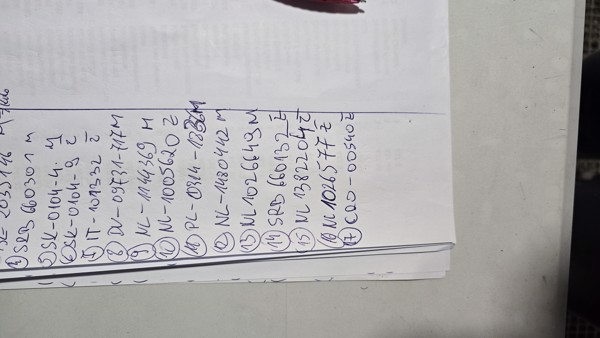 ④ SRB 660301 M
⑤ SK-0104-4. M
⑥ SK-0104-9 Ž
⑦ IT-101332 Ž
⑧ DV-09731-717M
⑨ NL-1144369 M
⑩ NL-1005620 Ž
⑪ PL-0314-
⑫ NL-1480442 M
⑬ NL1026649M
⑭ SRB 660132 Ž
⑮ NL1382204 Ž
⑯ NL1026577 Ž
⑰ -00540 Ž